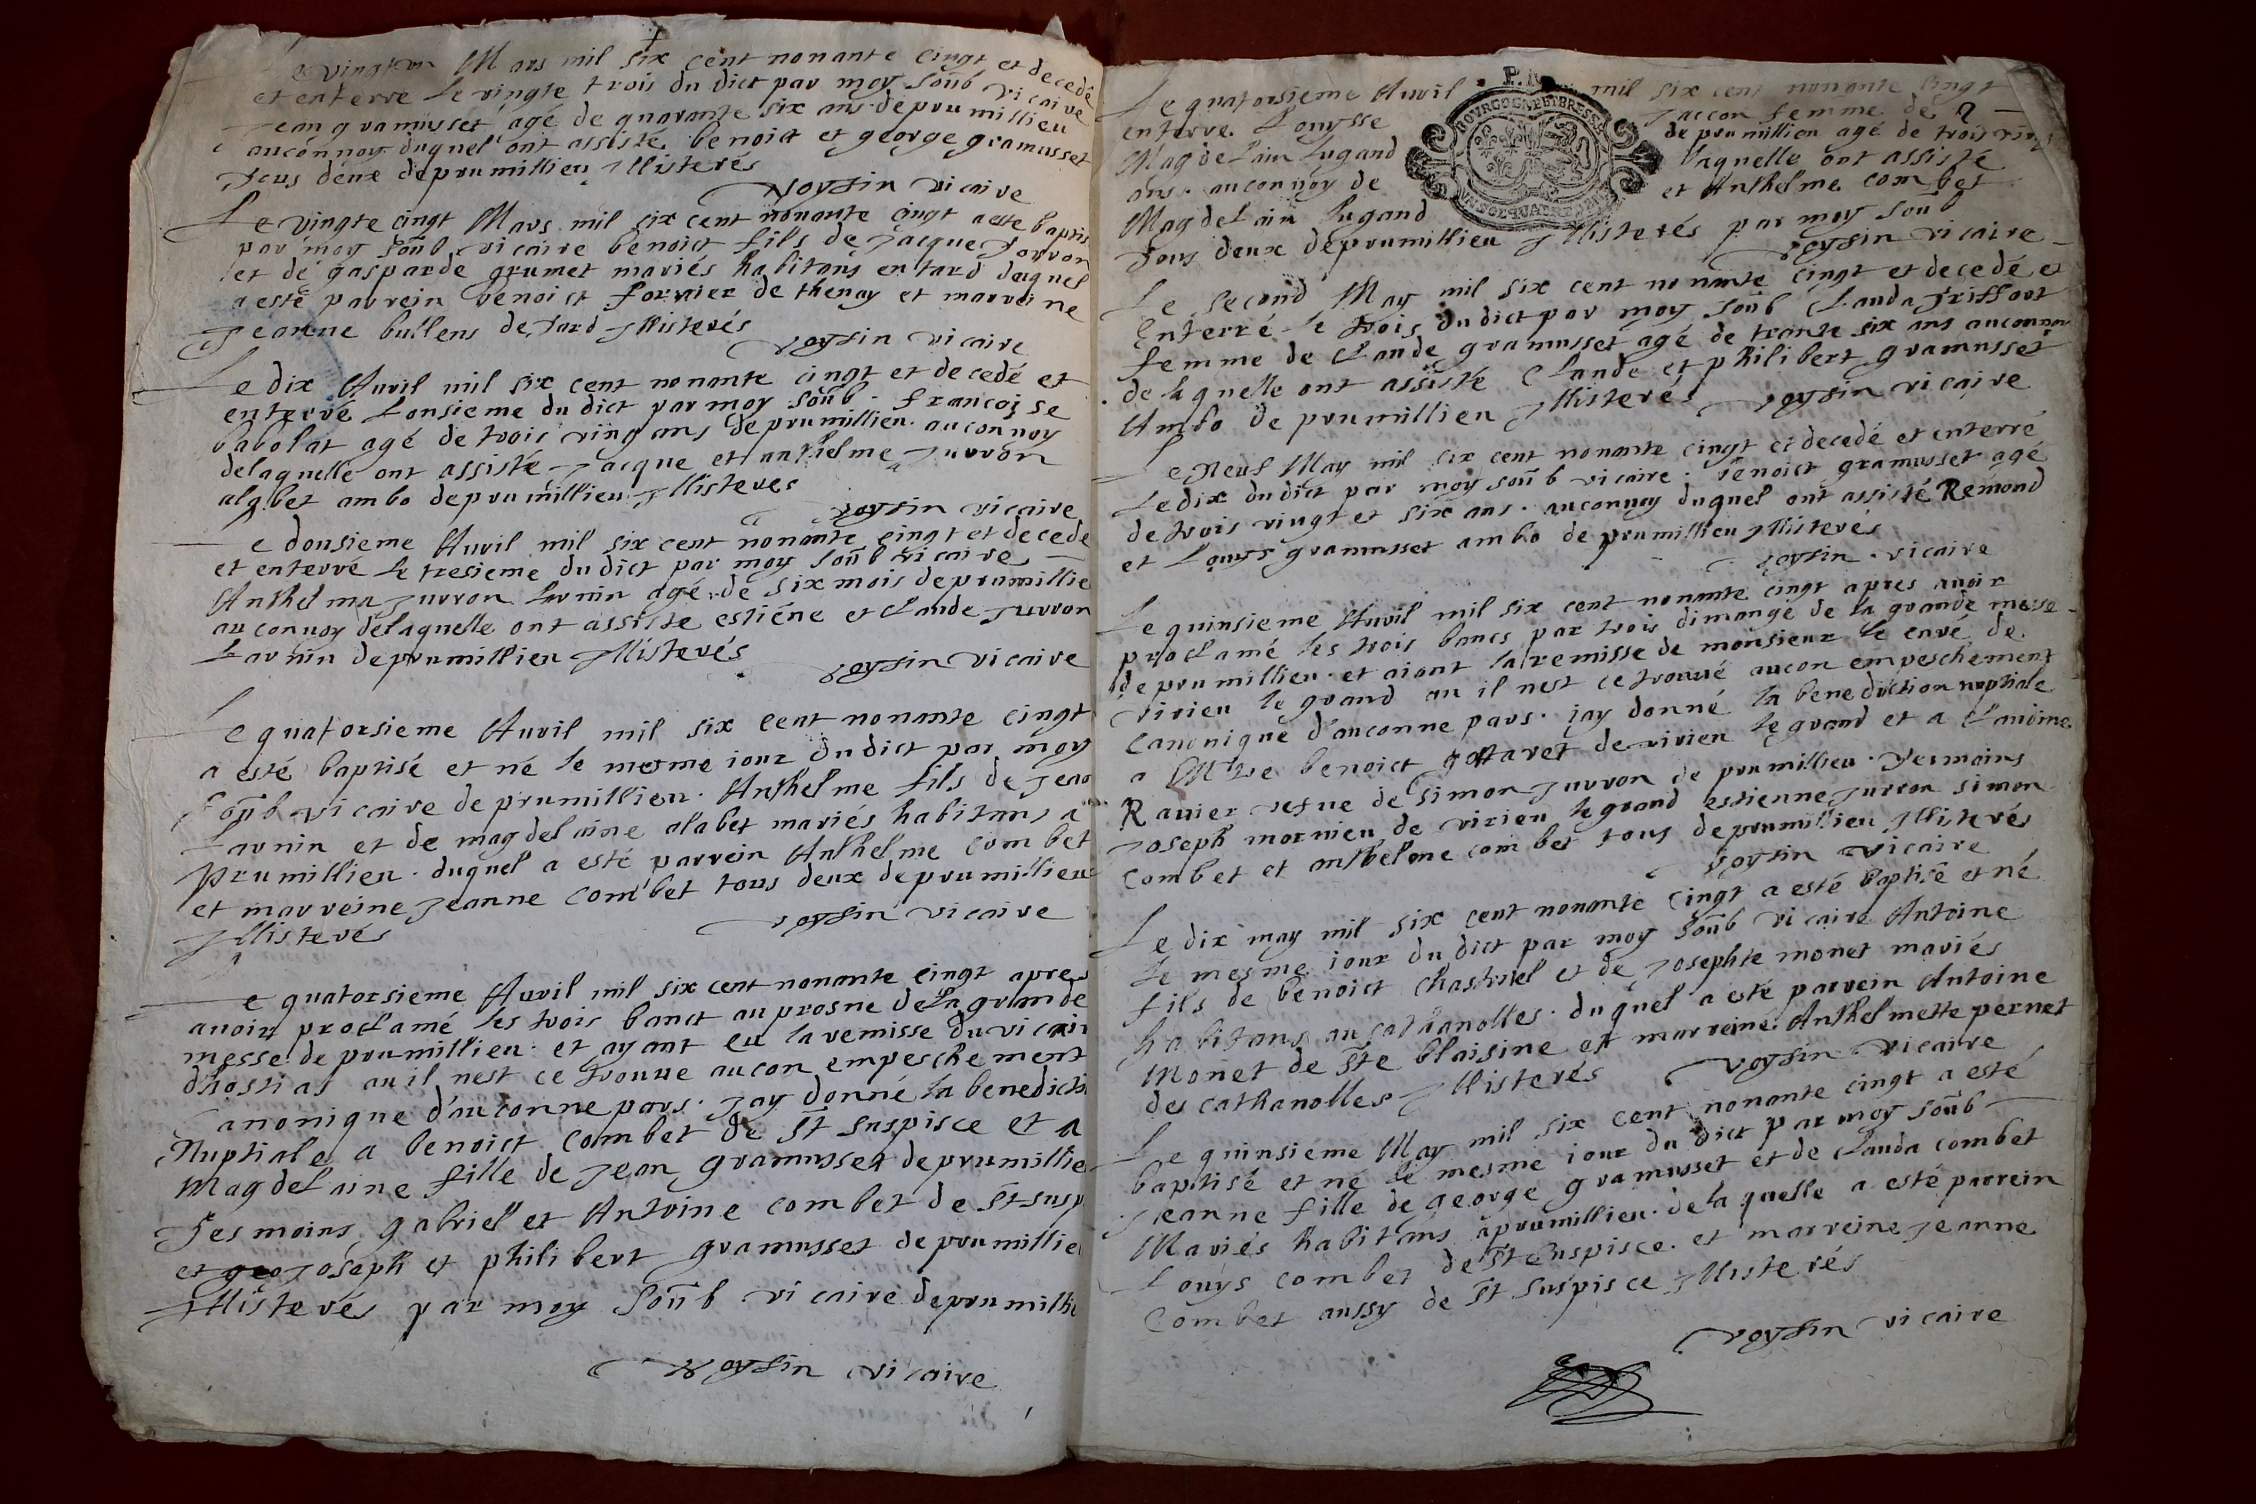 Mars mil six cent nonante cingt et decedé
et enterre Le vingte trois du dict par moy soub vicaire
Jean gramusset agé de quarante six ans de prumillieu
auconnoy duquel ont assisté benoict et george gramusset
Tous deux de prumillieu Illisterés
Voysin vicaire
Le vingte cingt Mars mil six cent nonante cingt a este baptis
par moy soub vicaire benoict fils de Jacque
et de gasparde grumet mariés habitans en tard duquel
a esté parrein benoist fornier de thenay et marreine
Jeanne bullens de Tard Illisterés
voysin vicaire
Le dix Auril mil six cent nonante cingt et decedé et
enterré Lonsieme du dict par moy soub francoise
babolat agé de trois ving ans de prumillieu auconnoy
delaquelle ont assisté Jacque et anthelme Jurron
alabet ambo de prumillieu Illisteres
voysin vicaire
Le dousieme Auril mil six cent nonante cingt et decede
et enterré Le tresieme du dict par moy soub vicaire
Anthelma Jurron Larnin agé de six mois de prumillie
au connoy delaquelle ont assiste estiene et Claude Jurron
Larnin de prumillieu Illisterés
voysin vicaire
Le quatorsieme Auril mil six cent nonante cingt
a esté baptisé et né le mesme iour du dict par moy
soub vicaire de prumillieu Anthelme fils de Jean
Larnin et de magdelaine alabet mariés habitans a
prumillieu duquel a esté parrein Anthelme combet
et marreine Jeanne combet tous deux de prumillieu
Illisterés
voysin vicaire
Le quatorsieme Auril mil six cent nonante cingt apres
auoir proclamé les trois banct au prosne de La grande
messe de prumillieu et ayant eu la remisse du vicair
dhostias au il nest ce trouue aucon empeschement
Canonique d'auconne pars Jay donné la benedicti
Nuptiale a benoict combet de st suspisce et a
MagdeLaine fille de Jean gramusset de prumillie
Tesmoins gabriel et Antoine combet de st susp
et Joseph et philibert gramusset de prumillie
Illisterés par moy soub vicaire de prumillie
voysin vicaire
Le quatorsieme Auril mil six cent nonante cingt
enterre Louysse Jaccon femme de
MagdeLain Lugand de prumillieu agé de trois vings
ans auconnoy de Laquelle ont assisté
MagdeLain Lugand et Anthelme combet
Tous deux de prumillieu Illisterés par moy soub
voysin vicaire
Le second May mil six cent nonante cingt et decedé et
Enterré le trois du dict par moy soub Clauda
femme de Claude gramusset agé de trante six ans auconnoy
de laquelle ont assisté Claude et philibert gramusset
Ambo de prumillieu Illisterés voysin vicaire
Le Neuf May mil six cent nonante cingt et decedé et enterré
Le dix du dict par moy soub vicaire benoict gramusset agé
de trois vingt et six ans auconnoy duquel ont assisté Remond
et Louys gramusset ambo de prumillieu Illisterés
voysin vicaire
Le quinsieme Auril mil six cent nonante cingt apres auoir
proclamé les trois bancs par trois dimange de la grande messe
de prumillieu et aiant la remisse de monsieur le curé de
virieu le grand au il nest ce trouué aucon empeschement
Canonique d'auconne pars jay donné la benediction nuptiale
a benoict gottaret de virieu le grand et a Claudine
Rauier vefue de Simon Jurron de prumillieu Tesmoins
Joseph mornieu de virieu le grand estienne Jurron simon
combet et anthelme combet tous de prumillieu Illisterés
voysin vicaire
Le dix may mil six cent nonante cingt a esté baptisé et né
le mesme iour du dict par moy soub vicaire Antoine
fils de benoict Chastriel et de Josephte monet mariés
habitans au cathanolles duquel a esté parrein Antoine
Monet de ste blaisine et marreine Anthelmette pernet
des cathanolles Illisterés voysin vicaire
Le quinsieme May mil six cent nonante cingt a esté
baptisé et né le mesme iour du dict par moy soub
Jeanne fille de george gramusset et de Clauda combet
Mariés habitans a prumillieu de la quelle a esté parrein
Louys combet de st suspisce et marreine Jeanne
Combet aussy de st suspisce Illisterés
voysin vicaire